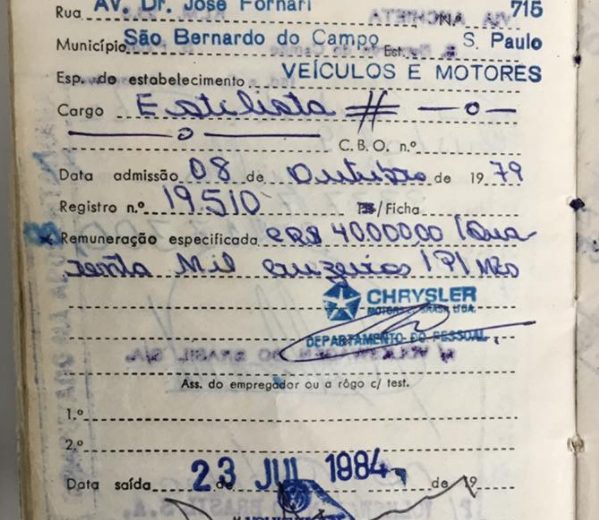 Rua AV. Dr. José Fornari Nº 715
Município São Bernardo do Campo Est. S. Paulo
Esp. do estabelecimento VEÍCULOS E MOTORES
Cargo Estilista
C.B.O. n.º
Data admissão 08 de Outubro de 19 79
Registro n.º 19510 /Ficha
Remuneração especificada CR$ 40.000,00 (Qua-
renta Mil Cruzeiros) P/ Mês
CHRYSLER
MOTORS DO BRASIL LTDA.
DEPARTAMENTO DO PESSOAL
Ass. do empregador ou a rôgo c/ test.
1.º
2.º
Data saída 23 JUL 1984 de 19